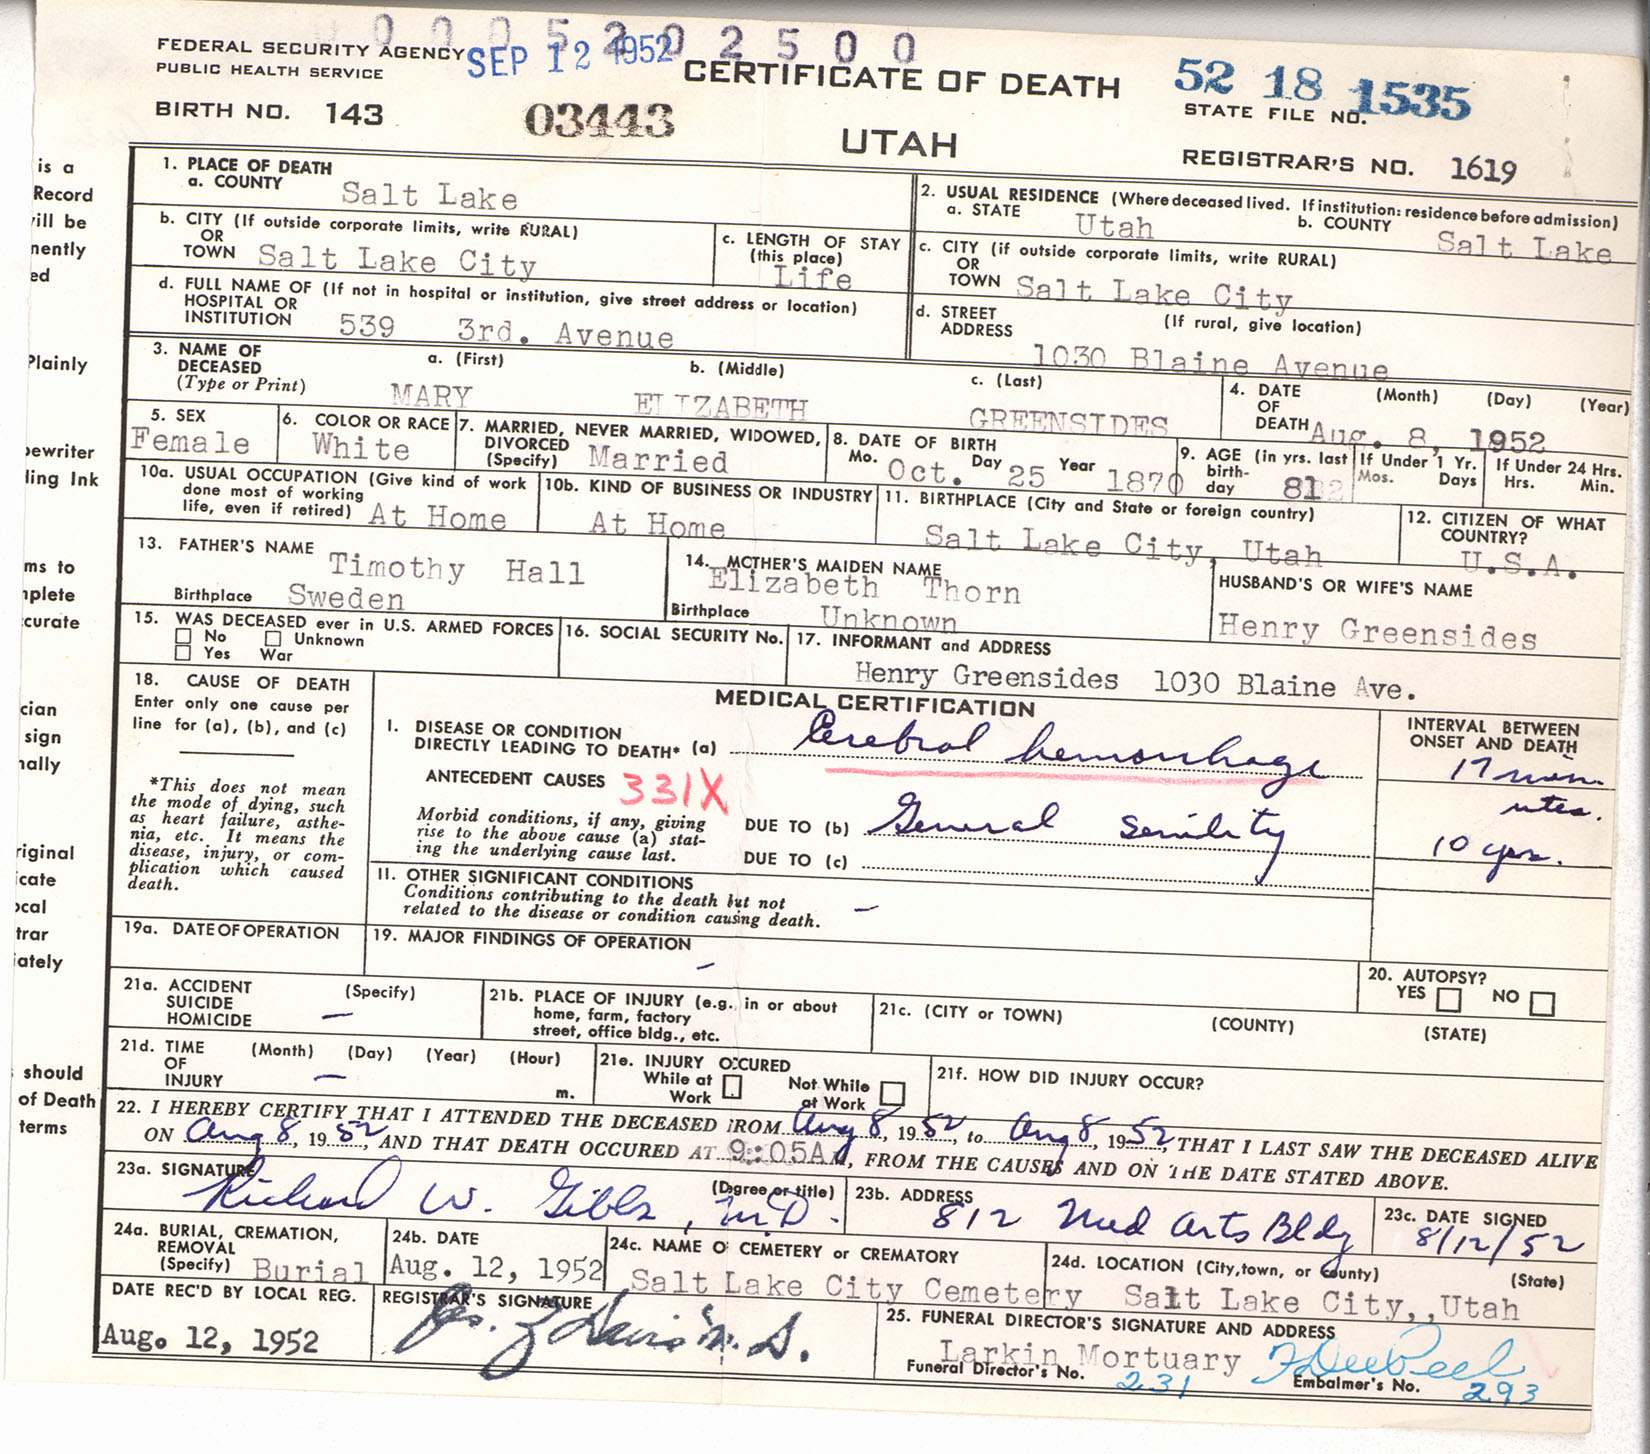 00005202500
FEDERAL SECURITY AGENCY
PUBLIC HEALTH SERVICE
SEP 12 1952
CERTIFICATE OF DEATH
52 18 1535
STATE FILE NO.
BIRTH NO. 143
03443
UTAH
REGISTRAR'S NO. 1619
is a
Record
will be
nently
ed
Plainly
pewriter
ling Ink
ms to
mplete
curate
cian
sign
nally
riginal
icate
ocal
trar
iately
should
of Death
terms
1. PLACE OF DEATH
a. COUNTY Salt Lake
2. USUAL RESIDENCE (Where deceased lived. If institution: residence before admission)
a. STATE Utah b. COUNTY Salt Lake
b. CITY (If outside corporate limits, write RURAL)
OR
TOWN Salt Lake City
c. LENGTH OF STAY
(this place)
Life
c. CITY (if outside corporate limits, write RURAL)
OR
TOWN Salt Lake City
d. FULL NAME OF (If not in hospital or institution, give street address or location)
HOSPITAL OR
INSTITUTION 539 3rd. Avenue
d. STREET
ADDRESS (If rural, give location)
1030 Blaine Avenue
3. NAME OF
DECEASED
(Type or Print)
a. (First) b. (Middle) c. (Last)
MARY ELIZABETH GREENSIDES
4. DATE (Month) (Day) (Year)
OF
DEATH Aug. 8, 1952
5. SEX
Female
6. COLOR OR RACE
White
7. MARRIED, NEVER MARRIED, WIDOWED,
DIVORCED
(Specify) Married
8. DATE OF BIRTH
Mo. Day Year
Oct. 25 1870
9. AGE (in yrs. last
birth-
day 81
If Under 1 Yr.
Mos. Days
If Under 24 Hrs.
Hrs. Min.
10a. USUAL OCCUPATION (Give kind of work
done most of working
life, even if retired) At Home
10b. KIND OF BUSINESS OR INDUSTRY
At Home
11. BIRTHPLACE (City and State or foreign country)
Salt Lake City, Utah
12. CITIZEN OF WHAT
COUNTRY?
U.S.A.
13. FATHER'S NAME Timothy Hall
Birthplace Sweden
14. MOTHER'S MAIDEN NAME
Elizabeth Thorn
Birthplace Unknown
HUSBAND'S OR WIFE'S NAME
Henry Greensides
15. WAS DECEASED ever in U.S. ARMED FORCES
No Unknown
Yes War
16. SOCIAL SECURITY No.
17. INFORMANT and ADDRESS
Henry Greensides 1030 Blaine Ave.
18. CAUSE OF DEATH
Enter only one cause per
line for (a), (b), and (c)
*This does not mean
the mode of dying, such
as heart failure, asthe-
nia, etc. It means the
disease, injury, or com-
plication which caused
death.
MEDICAL CERTIFICATION
I. DISEASE OR CONDITION
DIRECTLY LEADING TO DEATH* (a) Cerebral hemorrhage
ANTECEDENT CAUSES 331X
Morbid conditions, if any, giving
rise to the above cause (a) stat-
ing the underlying cause last.
DUE TO (b) General senility
DUE TO (c)
INTERVAL BETWEEN
ONSET AND DEATH
17 min-
utes.
10 yrs.
II. OTHER SIGNIFICANT CONDITIONS
Conditions contributing to the death but not
related to the disease or condition causing death. –
19a. DATE OF OPERATION
19. MAJOR FINDINGS OF OPERATION
–
20. AUTOPSY?
YES NO
21a. ACCIDENT (Specify)
SUICIDE
HOMICIDE –
21b. PLACE OF INJURY (e.g. in or about
home, farm, factory
street, office bldg., etc.
21c. (CITY or TOWN) (COUNTY) (STATE)
21d. TIME (Month) (Day) (Year) (Hour)
OF
INJURY – m.
21e. INJURY OCCURED
While at Work Not While at Work
21f. HOW DID INJURY OCCUR?
22. I HEREBY CERTIFY THAT I ATTENDED THE DECEASED FROM Aug 8, 1952, to Aug 8, 1952, THAT I LAST SAW THE DECEASED ALIVE
ON Aug 8, 1952, AND THAT DEATH OCCURED AT 9:05A M, FROM THE CAUSES AND ON THE DATE STATED ABOVE.
23a. SIGNATURE (Dgree or title)
Richard W. Gibbs, M.D.
23b. ADDRESS
812 Med Arts Bldg
23c. DATE SIGNED
8/12/52
24a. BURIAL, CREMATION,
REMOVAL
(Specify) Burial
24b. DATE
Aug. 12, 1952
24c. NAME OF CEMETERY or CREMATORY
Salt Lake City Cemetery
24d. LOCATION (City, town, or county) (State)
Salt Lake City,, Utah
DATE REC'D BY LOCAL REG.
Aug. 12, 1952
REGISTRAR'S SIGNATURE
25. FUNERAL DIRECTOR'S SIGNATURE AND ADDRESS
Larkin Mortuary F Dee Peel
Funeral Director's No. 231
Embalmer's No. 293